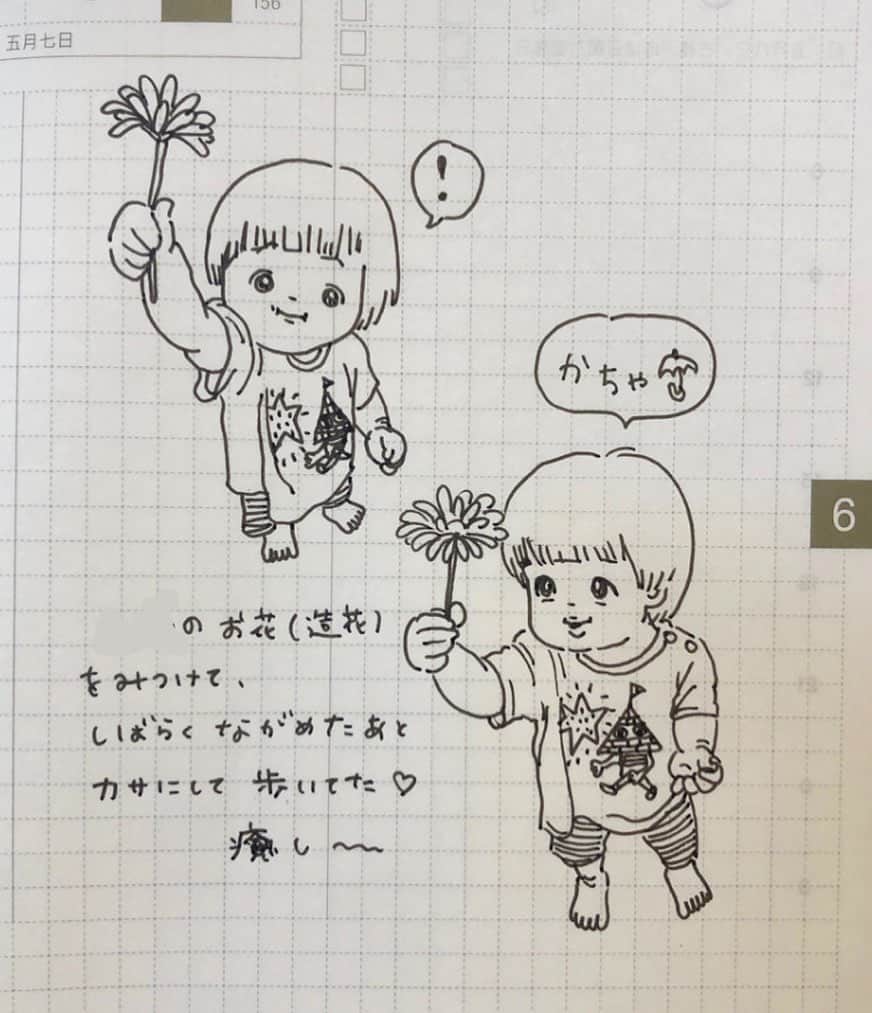 156
五月七日
!
かちゃ
6
のお花(造花)
をみつけて、
しばらくながめたあと
カサにして歩いてた♡
癒し〜